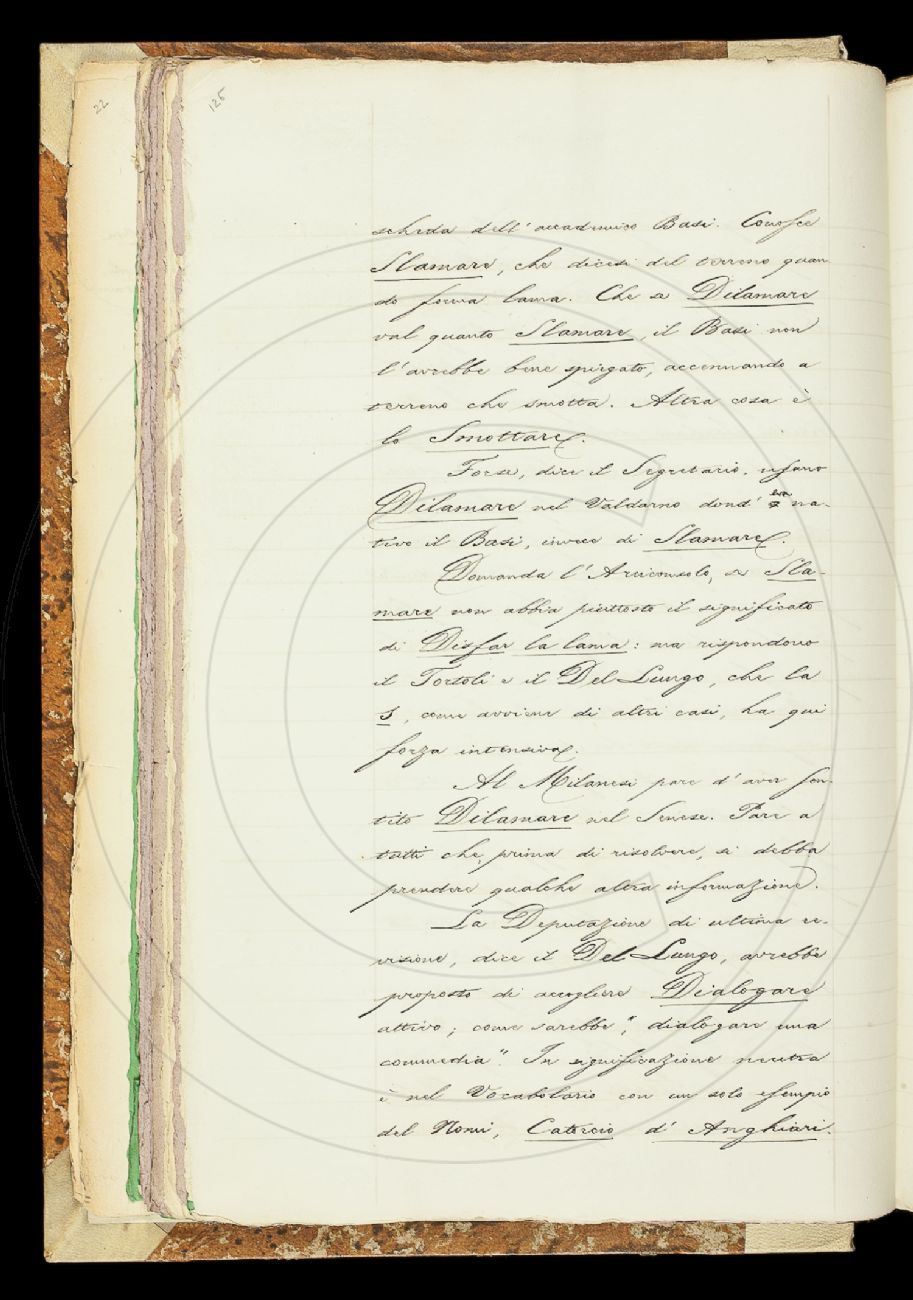 22
125
scheda dell'accademico Basi. Conosce
Slamare, che dicesi del terreno quan
do forma lama. Che se Dilamare
val quanto Slamare, il Basi non
l'avrebbe bene spiegato, accennando a
terreno che smotta. Altra cosa è
lo Smottare.
Forse, dice il Segretario, usano
Dilamare nel Valdarno dond' era na-
tivo il Basi, invece di Slamare.
Domanda l'Arciconsolo, se Sla-
mare non abbia piuttosto il significato
di Disfar la lama: ma rispondono
il Tortoli e il Del Lungo, che la
S, come avviene di altri casi, ha qui
forza intensiva.
Al Milanesi pare d'aver sen-
tito Dilamare nel Senese. Pare a
tutti che, prima di risolvere, si debba
prendere qualche altra informazione.
La Deputazione di ultima re-
visione, dice il Del Lungo, avrebbe
proposto di accogliere Dialogare
attivo; come sarebbe "dialogare una
commedia". In significazione neutra
è nel Vocabolario con un solo esempio
del Nomi, Catorcio d'Anghiari.